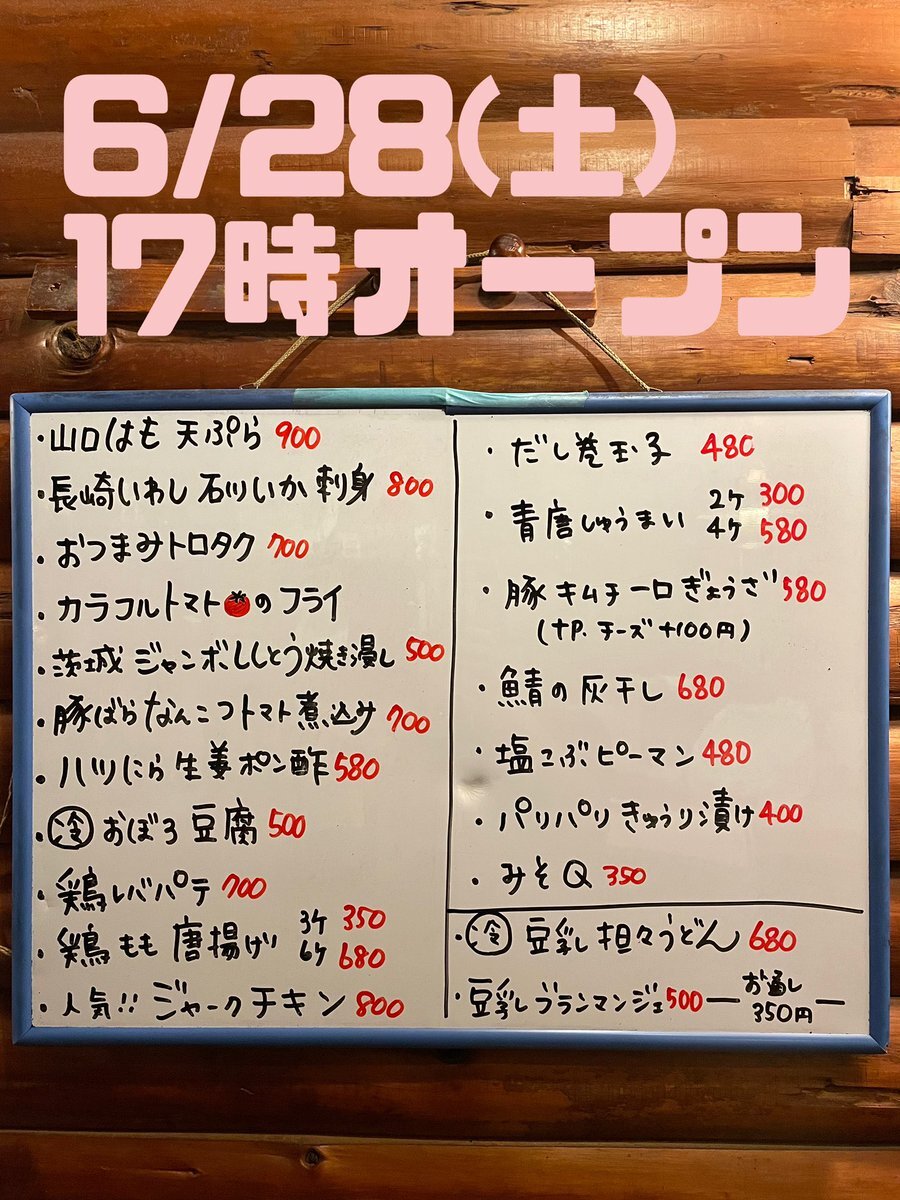 6/28(土)
17時オープン
・山口はも 天ぷら 900
・長崎いわし 石川いか 刺身 800
・おつまみトロタク 700
・カラフルトマト🍅のフライ
・茨城 ジャンボししとう焼き浸し 500
・豚ばらなんこつトマト煮込み 700
・ハツにら生姜ポン酢 580
・冷 おぼろ豆腐 500
・鶏レバパテ 700
・鶏もも唐揚げ 3ケ 350
6ケ 680
・人気!! ジャークチキン 800
・だし巻玉子 480
・青唐しゅうまい 2ケ 300
4ケ 580
・豚キムチーロぎょうざ 580
(TP.チーズ+100円)
・鯖の灰干し 680
・塩こぶピーマン 480
・パリパリきゅうり漬け 400
・みそQ 350
・冷 豆乳担々うどん 680
・豆乳ブランマンジェ 500
お通し
350円